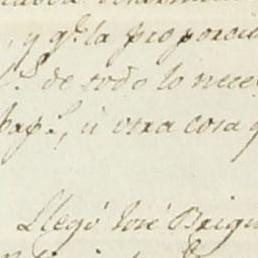 , y qe. la proporcio
de todo lo nece
Pape.l, ú otra cosa q
Llegó José Brigu